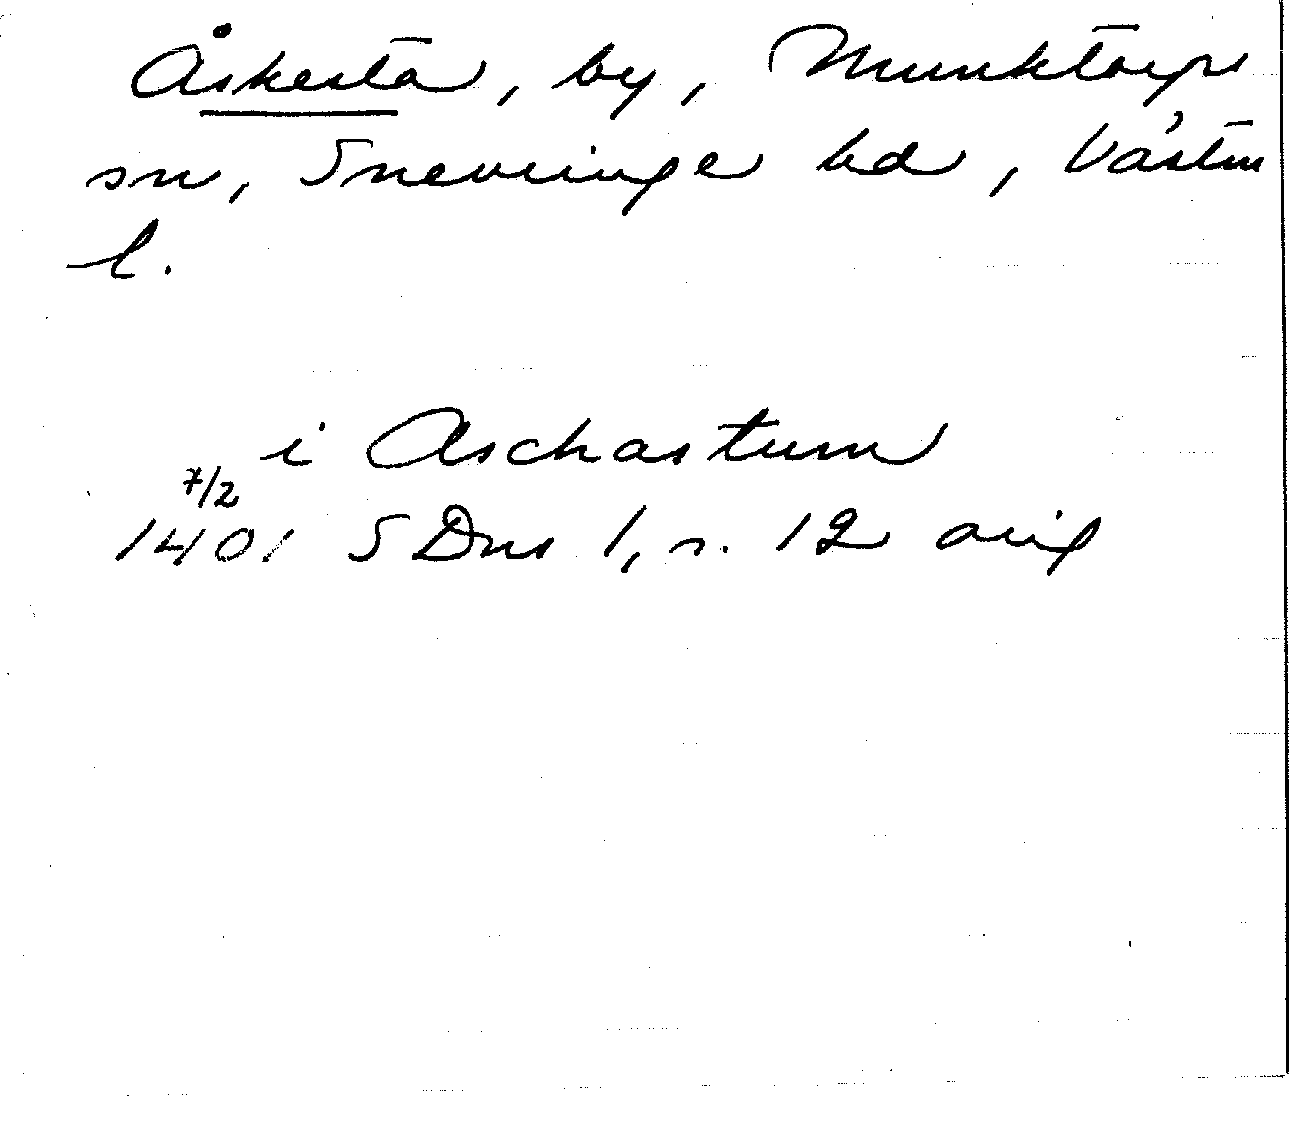 Åskesta, by, Munktorps
sn, Snevringe hd, Västm
l.
i Aschastum
7/2
1401 SDns 1, s. 12 orig